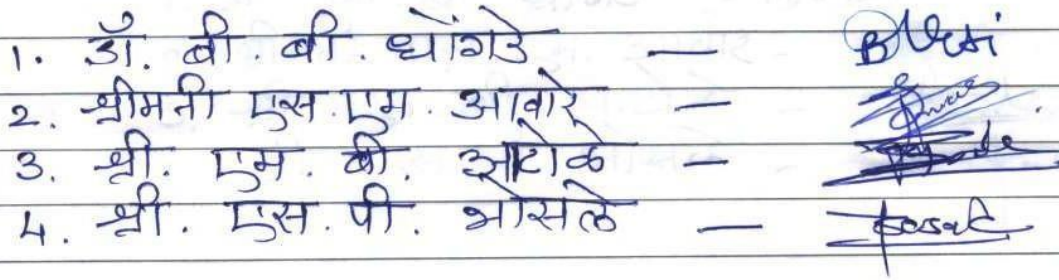 1. डॉ. बी. बी. घोंगडे —
2. श्रीमती एस. एम. आवारे —
3. श्री. एम. बी. आटोळे —
4. श्री. एस. पी. भोसले —